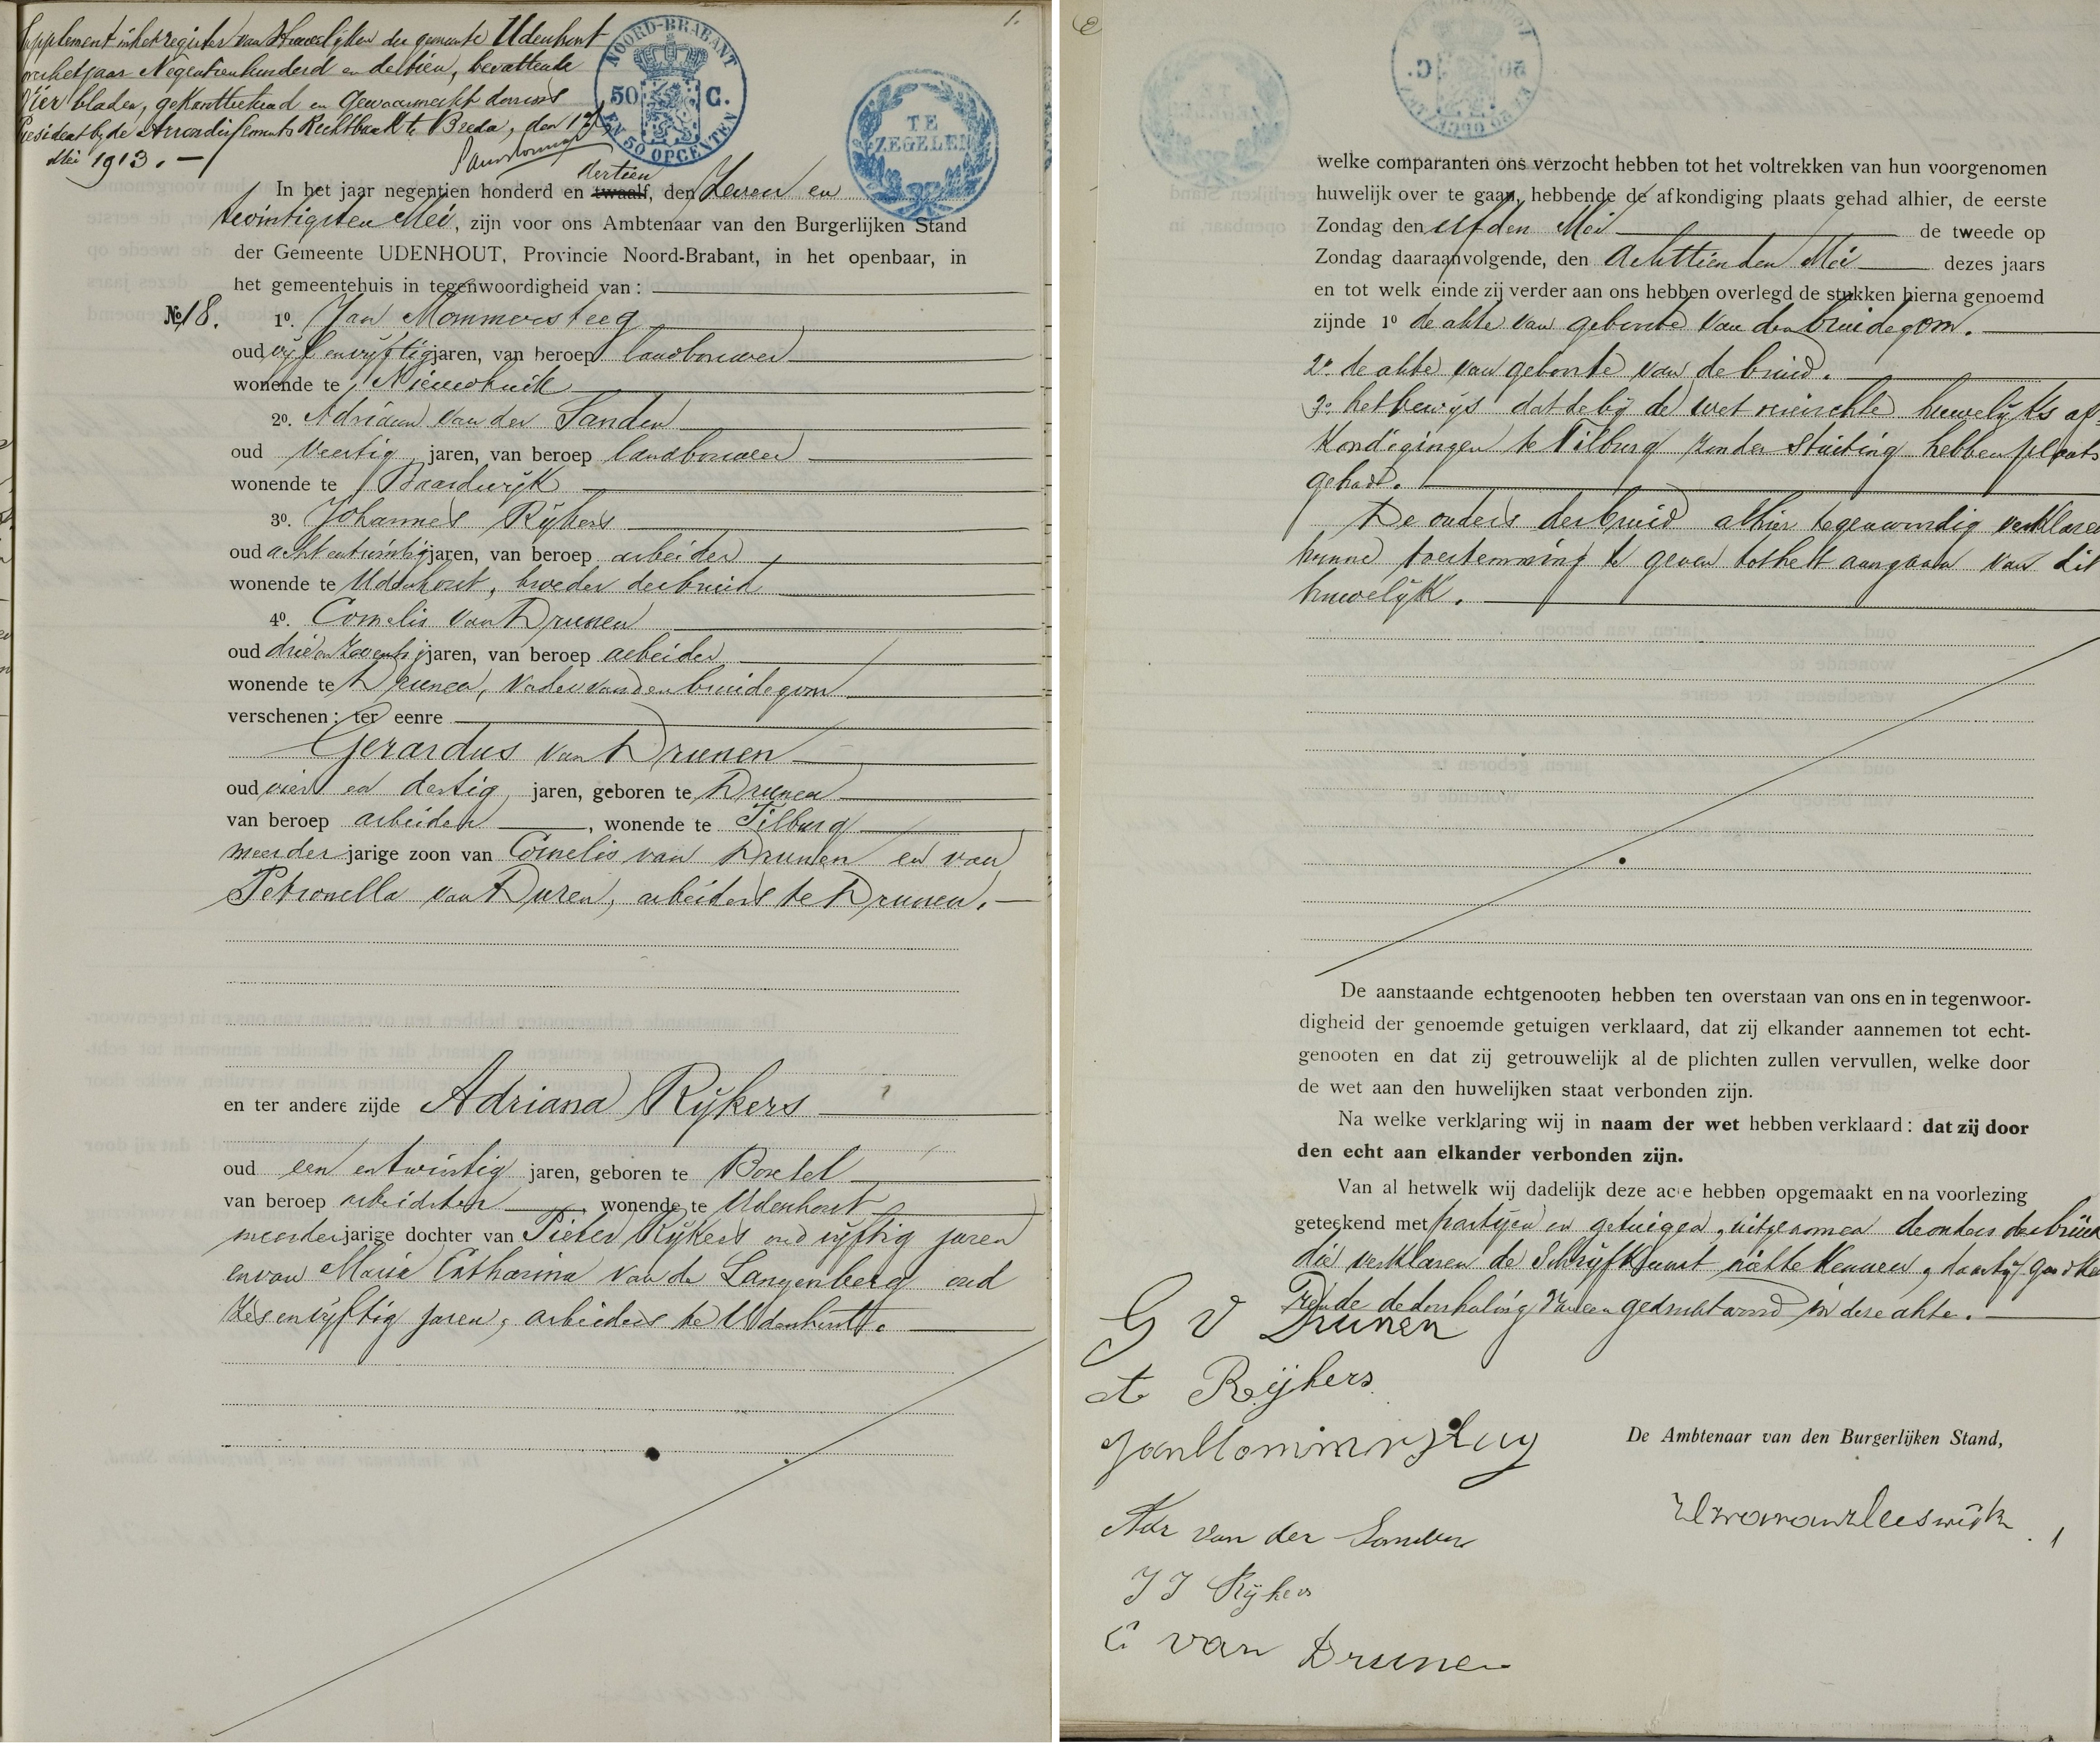 1.
Supplement in het register van Huwelijken der gemeente Udenhout
over het jaar Negentienhonderd en dertien, bevattende
Vier bladen, gekantteekend en Gewaarmerkt door ons
President bij de Arrondissements Rechtbank te Breda, den 17
Mei 1913. —
NOORD-BRABANT
50 C.
EN 50 OPCENTEN
TE
ZEGELEN
dertien
In het jaar negentien honderd en twaalf, den Zeven en
twintigsten Mei, zijn voor ons Ambtenaar van den Burgerlijken Stand
der Gemeente UDENHOUT, Provincie Noord-Brabant, in het openbaar, in
het gemeentehuis in tegenwoordigheid van :
No 18.
1o. Jan Mommersteeg
oud vijf en vijftig jaren, van beroep landbouwer
wonende te Nieuwkuik
2o. Adriaan van der Sanden
oud veertig jaren, van beroep landbouwer
wonende te Baardwijk
3o. Johannes Rijkers
oud acht en twintig jaren, van beroep arbeider
wonende te Udenhout, broeder der bruid
4o. Cornelis van Drunen
oud drie en zeventig jaren, van beroep arbeider
wonende te Drunen, vader van den bruidegom
verschenen : ter eenre
Gerardus van Drunen
oud vier en dertig jaren, geboren te Drunen
van beroep arbeider, wonende te Tilburg
meerderjarige zoon van Cornelis van Drunen en van
Petronella van Duren, arbeiders te Drunen. —
en ter andere zijde Adriana Rijkers
oud een en twintig jaren, geboren te Boxtel
van beroep arbeidster, wonende te Udenhout
meerderjarige dochter van Pieter Rijkers oud vijftig jaren
en van Maria Catharina van de Langenberg oud
zes en vijftig jaren, arbeiders te Udenhout.
welke comparanten ons verzocht hebben tot het voltrekken van hun voorgenomen
huwelijk over te gaan, hebbende de afkondiging plaats gehad alhier, de eerste
Zondag den elfden Mei de tweede op
Zondag daaraanvolgende, den Achttienden Mei dezes jaars
en tot welk einde zij verder aan ons hebben overlegd de stukken hierna genoemd
zijnde 1o de akte van geboorte van den bruidegom.
2o. de akte van geboorte van de bruid.
3o. het bewijs dat de bij de wet vereischte huwelijks af-
kondigingen te Tilburg zonder stuiting hebben plaats
gehad.
De ouders der bruid alhier tegenwoordig verklaren
hunne toestemming te geven tot het aangaan van dit
huwelijk.
De aanstaande echtgenooten hebben ten overstaan van ons en in tegenwoor-
digheid der genoemde getuigen verklaard, dat zij elkander aannemen tot echt-
genooten en dat zij getrouwelijk al de plichten zullen vervullen, welke door
de wet aan den huwelijken staat verbonden zijn.
Na welke verklaring wij in naam der wet hebben verklaard : dat zij door
den echt aan elkander verbonden zijn.
Van al hetwelk wij dadelijk deze acte hebben opgemaakt en na voorlezing
geteekend met partijen en getuigen, uitgenomen de ouders der bruid
die verklaren de Schrijfkunst niet te kennen, daarbij goedkeu
rende de doorhaling van een gedrukt woord in deze akte.
G v Drunen
A Reijkers
Jan Mommersteeg
De Ambtenaar van den Burgerlijken Stand,
Adr van der Sanden
J J Rijkers
C van Drunen